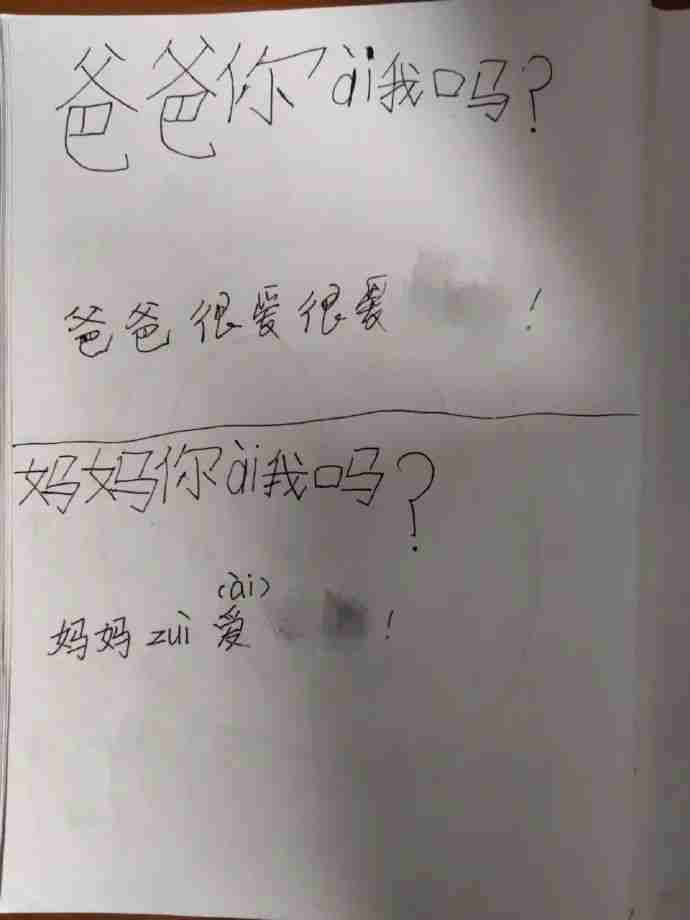 爸爸你ài我吗?
爸爸很爱很爱!
妈妈你ài我吗?
(ài)
妈妈zuì爱!